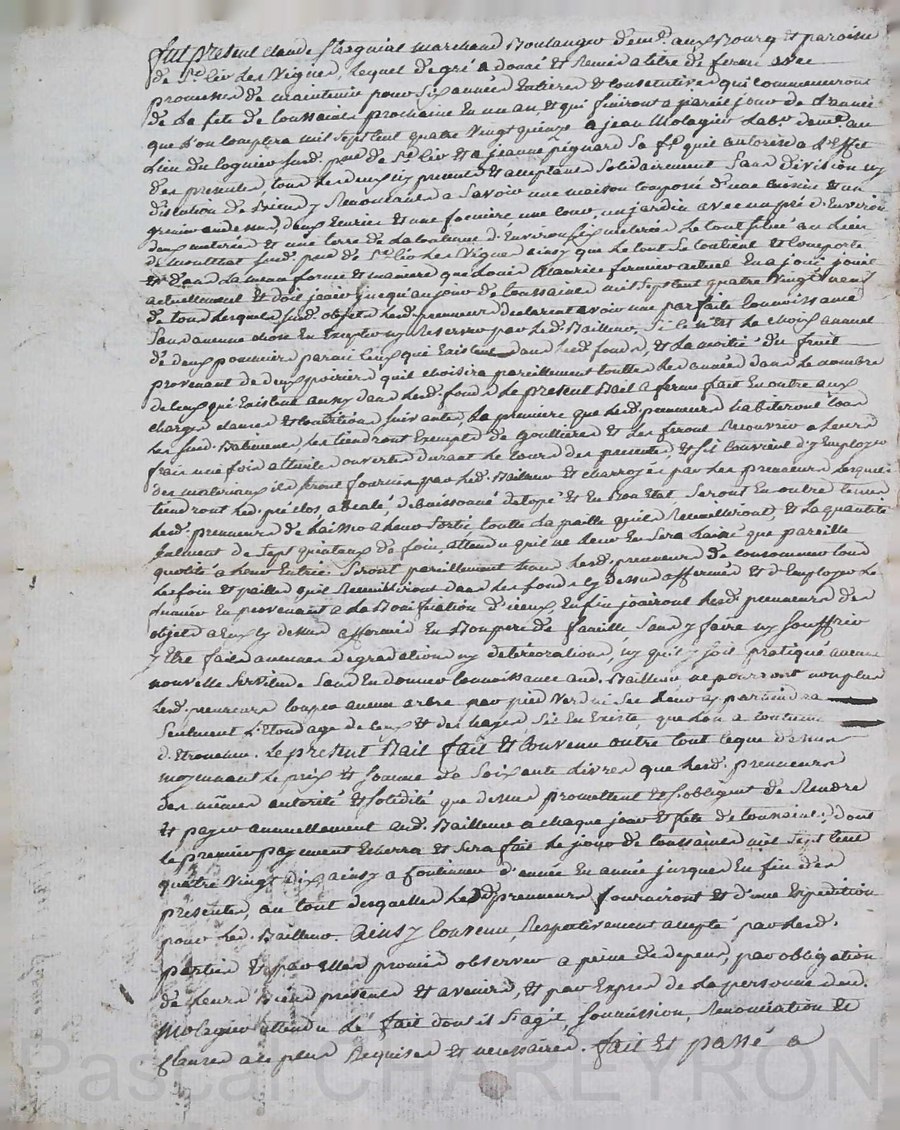 fut present claude Chaquial marchand Boulanger dem.t aux Bourg et paroisse
de St. cir les Vignes, lequel de gré a donné et Remis a titre de ferme avec
promesse de maintenir pour six années Entieres et consecutives qui commenceront
de La fete de toussaints prochaine En un an, et qui finiront a pareil jour de L'année
que L'on comptera mil sept cent quatre Vingt quinze a jean Molagier Lab.r dem.t au
Lieu du cognier susd. p.sse de St. cir et a jeanne pignard Sa f.e qu'il autorise a L'effet
des presentes, tous Les deux icy presents et acceptants Solidairement Sans division ny
discution de Biens y Renonceants a Savoir une maison composée d'une cuisine et un
grenier au dessus, deux Ecuries et une feniere une cour, un jardin avec un pré d'Environ
deux meterées et une terre de La contenue d'Environ Six meterées Le tout Situé au Lieu
de montchat susd. p.sse de St. cir Les Vignes ainsy que Le tout Se contient et comporte
et dans La meme forme et maniere que Louis Maurice fermier actuel En a joui jouit
actuellement et doit jouir jusqu'au jour de toussaints mil sept cent quatre Vingt neuf
de tous Lesquels susd. objets Lesd. preneurs declarent avoir une parfaite connoissance
Sans aucune chose En Excepter ny Reserver par Led. Bailleur, Si ce n'est Le choix annuel
de deux pommiers parmi ceux qui Existent dans Lesd. fonds, et La moitié du fruit
provenant de deux poiriers qu'il choisira pareillement touttes Les années dans Le nombre
de ceux qui Existent aussy dans Lesd. fonds Le present Bail a ferme fait En outre aux
charges clauses et conditions suivantes, La premiere que Lesd. preneurs habiteront tous
Les susd. Batiments, Les tiendront Exempts de gouttieres et Les feront Recouvrir a Leurs
frais une fois a thuile ouverte durant Le cours des presentes et S'il convient d'y Employer
des materiaux ils Seront fournis par Led. Bailleur et charroyés par Les preneurs Lesquels
tiendront Led. pré clos, a Bealé, deboissonné detopé et En Bon Etat Seront En outre tenus
Lesd. preneurs de Laisser a Leur Sortie toutte La paille qu'ils Recueilliront, et La quantité
Seulement de Sept quintaux de foin, attendu qu'il ne Leur En Sera Laissé que pareille
quotité a Leur Entrée. Seront pareillement tenus Lesd. preneurs de consommer tous
Les foin et pailles qu'ils Recueilliront dans Les fonds cy dessus affermés et d'Employer Le
fumier En provenant a La Bonification d'iceux, Enfin joüiront Lesd. preneurs des
objets a Eux cy dessus affermés En Bon pere de famille Sans y faire ny Souffrir
y Etre fait aucunes degradations ny deteriorations, ny qu'il y soit pratiqué aucune
nouvelle Servitude Sans En donner connoissance aud. Bailleur ne pourront non plus
Lesd. preneurs couper aucun arbre par pied Verd ni Sec Leur appartiendra
Seulement L'Etondage de ceux et des hayes S'il En Existe que L'on a coutume
d'Etroncher. Le present Bail fait et Convenu outre tout ceque dessus
moyennant Le prix et Somme de Soixante Livres que Lesd. preneurs
des mêmes autorité et solidité que dessus promettent et s'obligent de Rendre
et payer annuellement aud. Bailleur a chaque jour et fete de toussaints, dont
Le premier payement Echerra et Sera fait Le jour de toussaints mil sept cent
quatre Vingt dix, ainsy a continuer d'année En année jusques En fin des
presentes, au tout desquelles Lesd. preneurs fourniront et d'une Expedition
pour Led. Bailleur. Ainsy Convenu, Respectivement accepté par Lesd.
parties et par elles promis observer a peine de depens, par obligation
de Leurs Biens presents et avenirs, et par Exprès de La personne dud.
Molagier attendu Le fait dont il S'agit, Soumission, Renonciation et
clauses au plus Requises et necessaires. fait et passé a
Pascal CHAREYRON